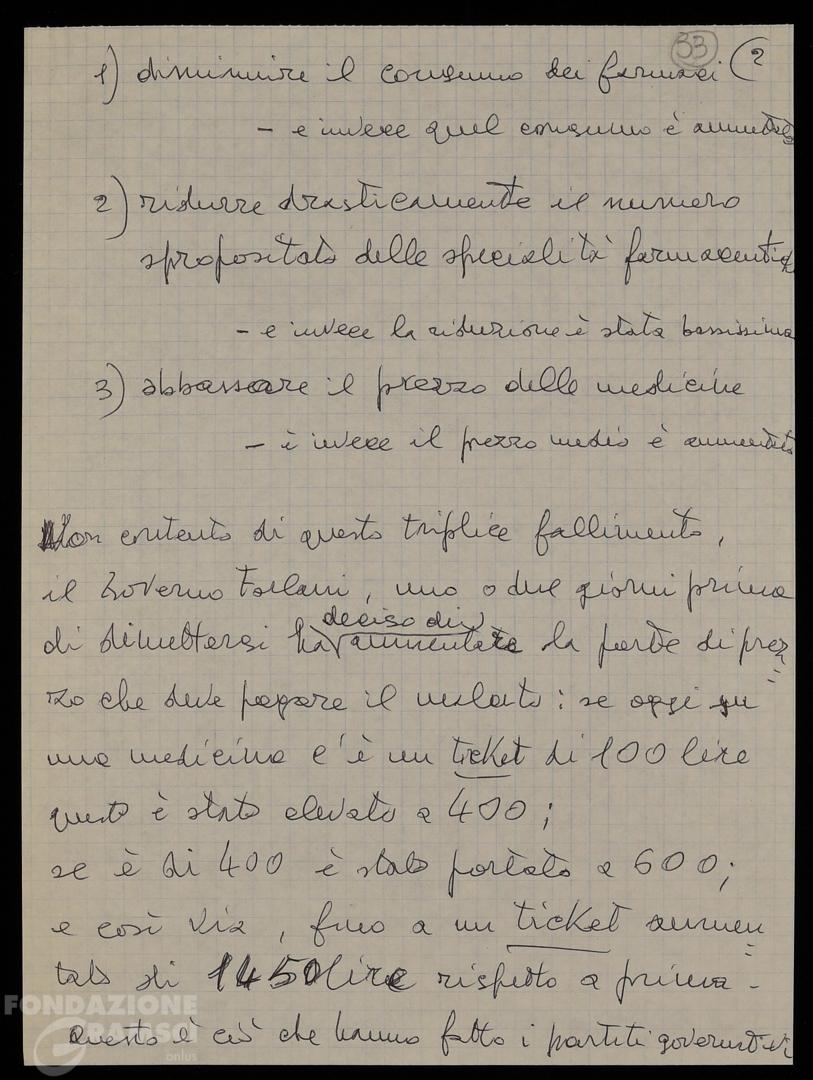 33
1) diminuire il consumo dei farmaci (2
- e invece quel consumo è aumentato
2) ridurre drasticamente il numero
spropositato delle specialità farmaceutiche
- e invece la riduzione è stata bassissima
3) abbassare il prezzo delle medicine
- e invece il prezzo medio è aumentato
Non contento di questo triplice fallimento,
il Governo Forlani, uno o due giorni prima
deciso di
di dimettersi ha aumentare la parte di prez
zo che deve pagare il malato: se oggi su
una medicina c'è un ticket di 100 lire
questo è stato elevato a 400;
se è di 400 è stato portato a 600;
e così via, fino a un ticket aumen
tato di 1450 lire rispetto a prima.
Questo è ciò che hanno fatto i partiti governativi
FONDAZIONE
GRAMSCI
onlus